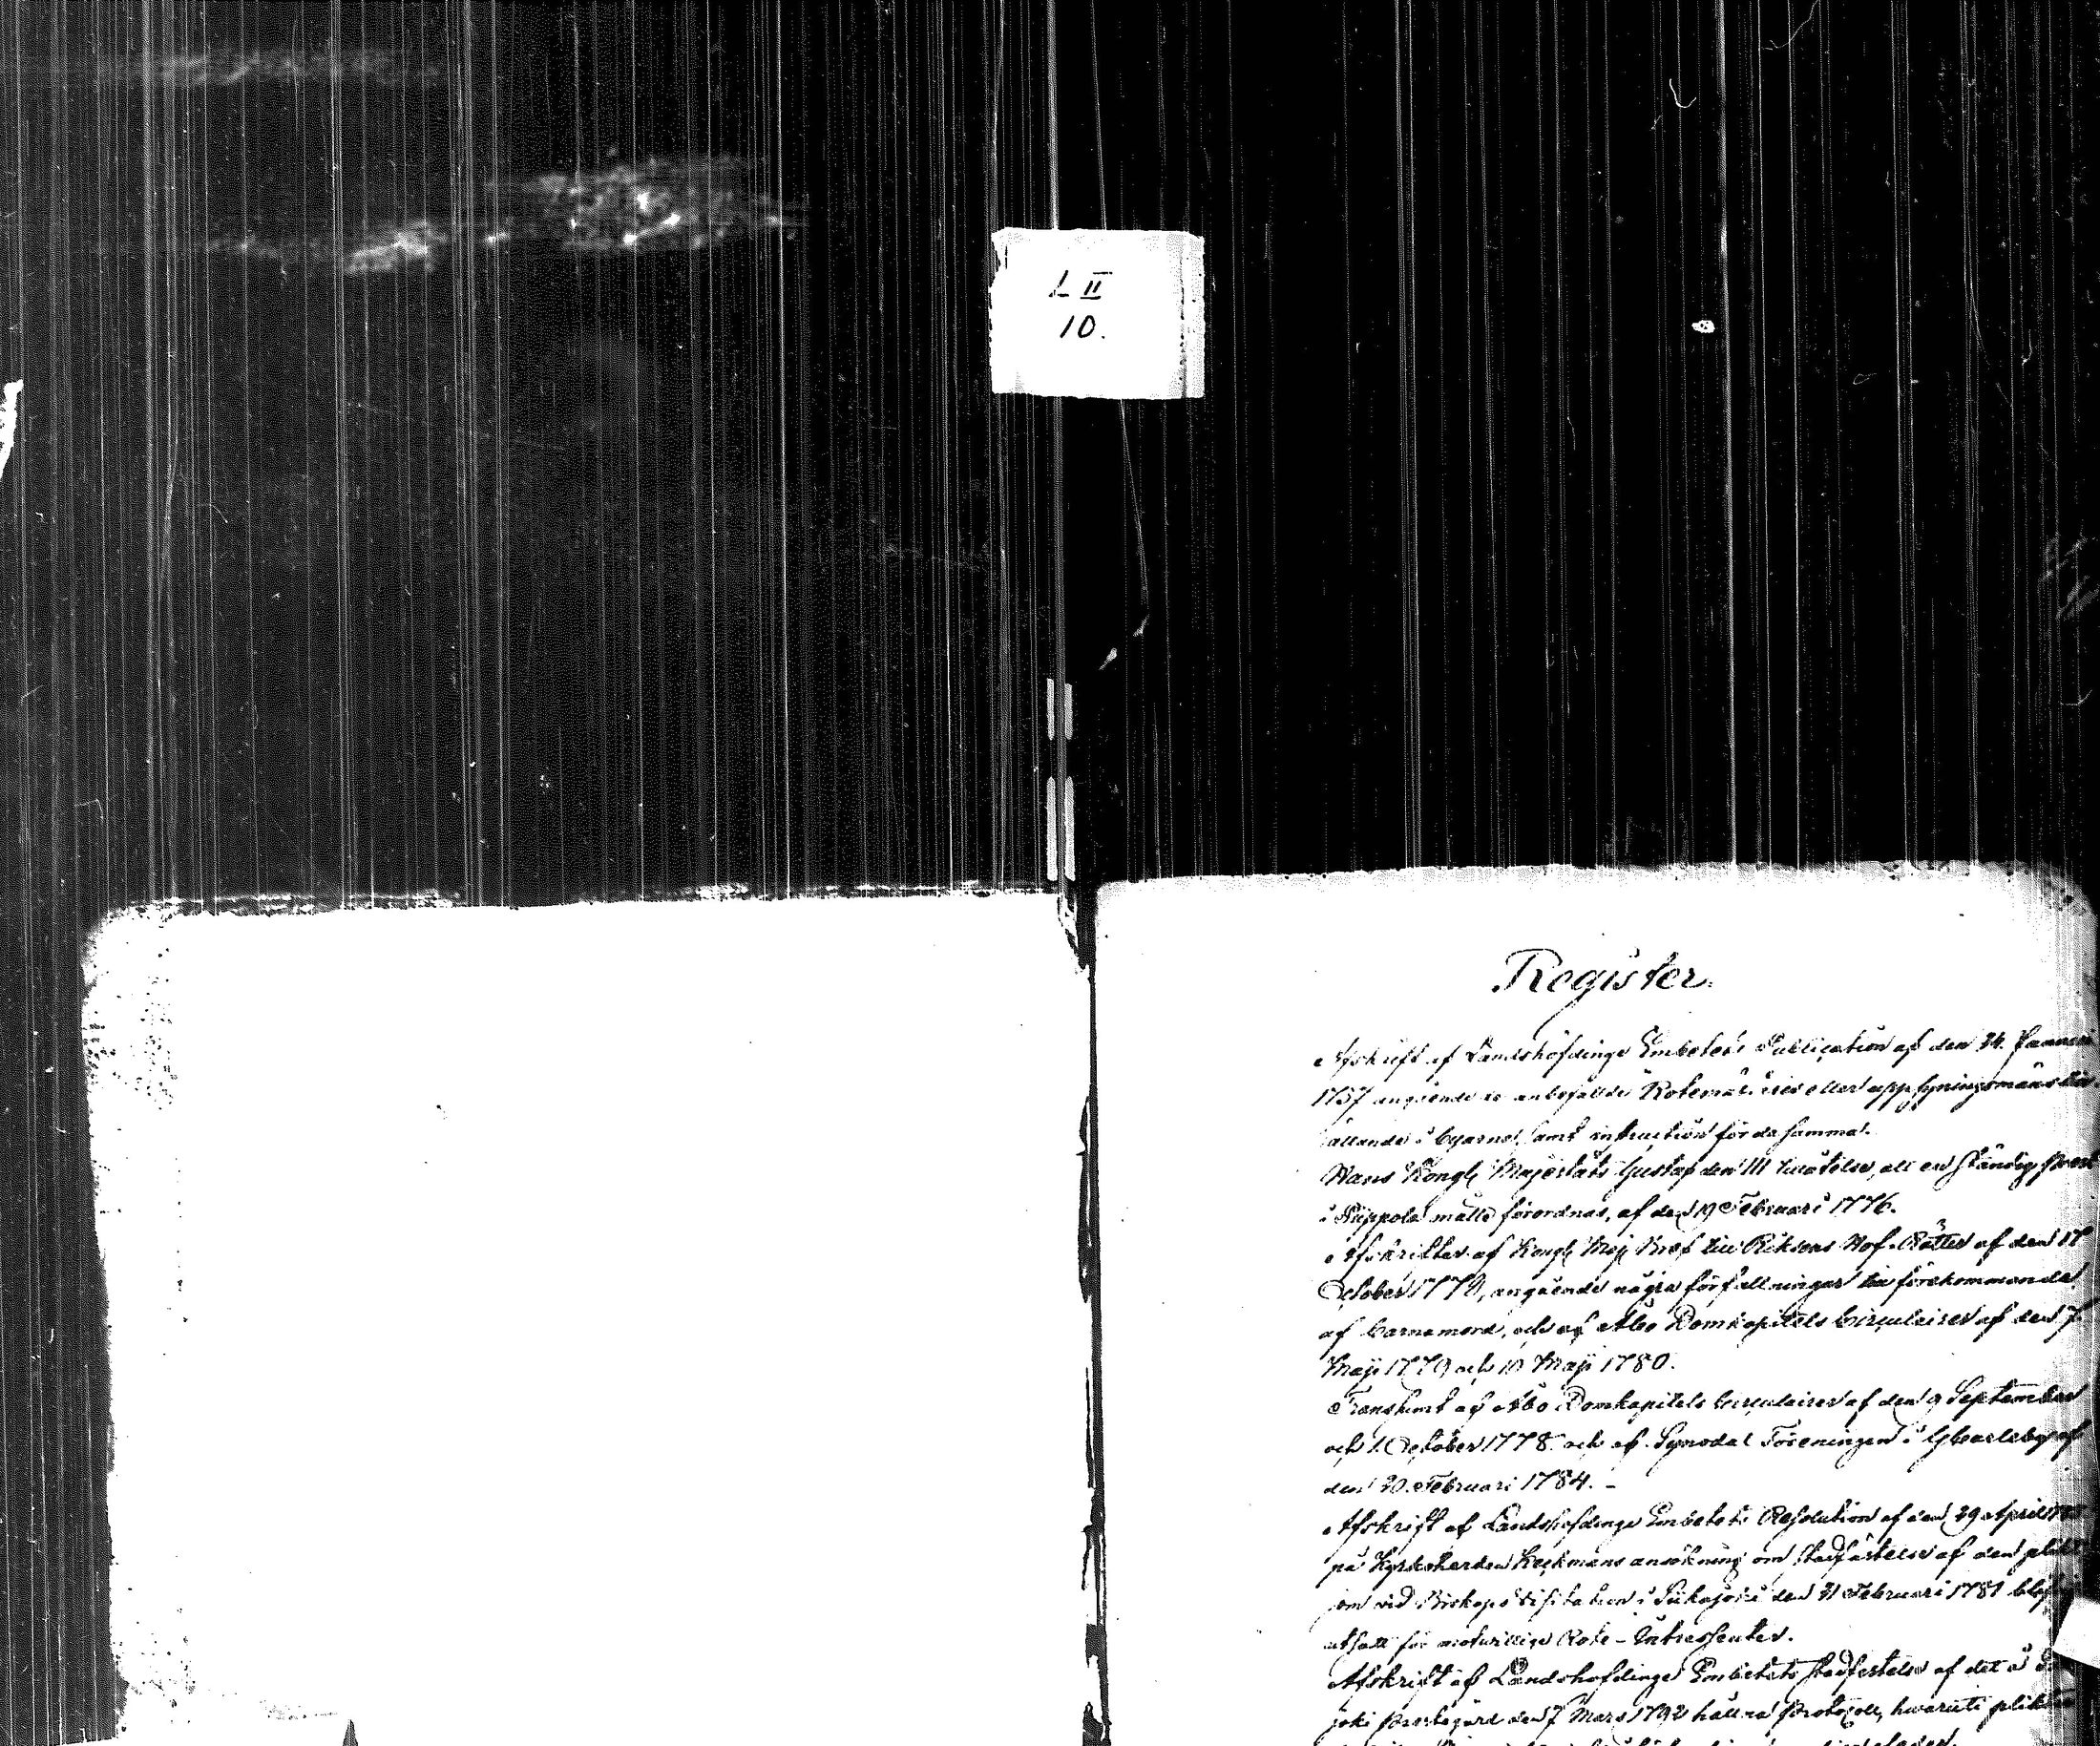 L II
10.
Register.
Afskrift af Landshöfdinge Embetets Publication af den 24. Januarii
1757 angående de anbefallde Rotemästares eller uppsyningsmäns
hållande i byarne, samt instruction för de samma.
Hans Kongl. Majestäts Gustaf den III tillåtelse, att en ständig Prest
i Pippola måtte förordnas, af den 19 Februari 1776.
Afskrifter af Kongl. Maj. Bref till Riksens Hof-Rätter af den 17
October 1778, angående några författningar till förekommande
af barnamord, och af Åbo Domkapitels Circulairer af den 7
Maji 1779 och 10 Maji 1780.
Transsumt af Åbo Domkapitels Circulairer af den 9 September
och 1. October 1778. och af Synodal Föreningen i GCarleby af
den 20. Februari 1784. -
Afskrift af Landshöfdinge Embetets Resolution af den 29 April
på Kyrkoherden Heckmans ansökning om stadfästelse af den plikt
som vid Biskops Visitation i Siikajoki den 21 Februari 1781 blef
utsatt för motvillige Rote-Intressenter.
Afskrift af Landshöfdinge Embetets stadfästelse af det å
joki Prestegård den 7 Mars 1792 hållna Protocoll, hvaruti